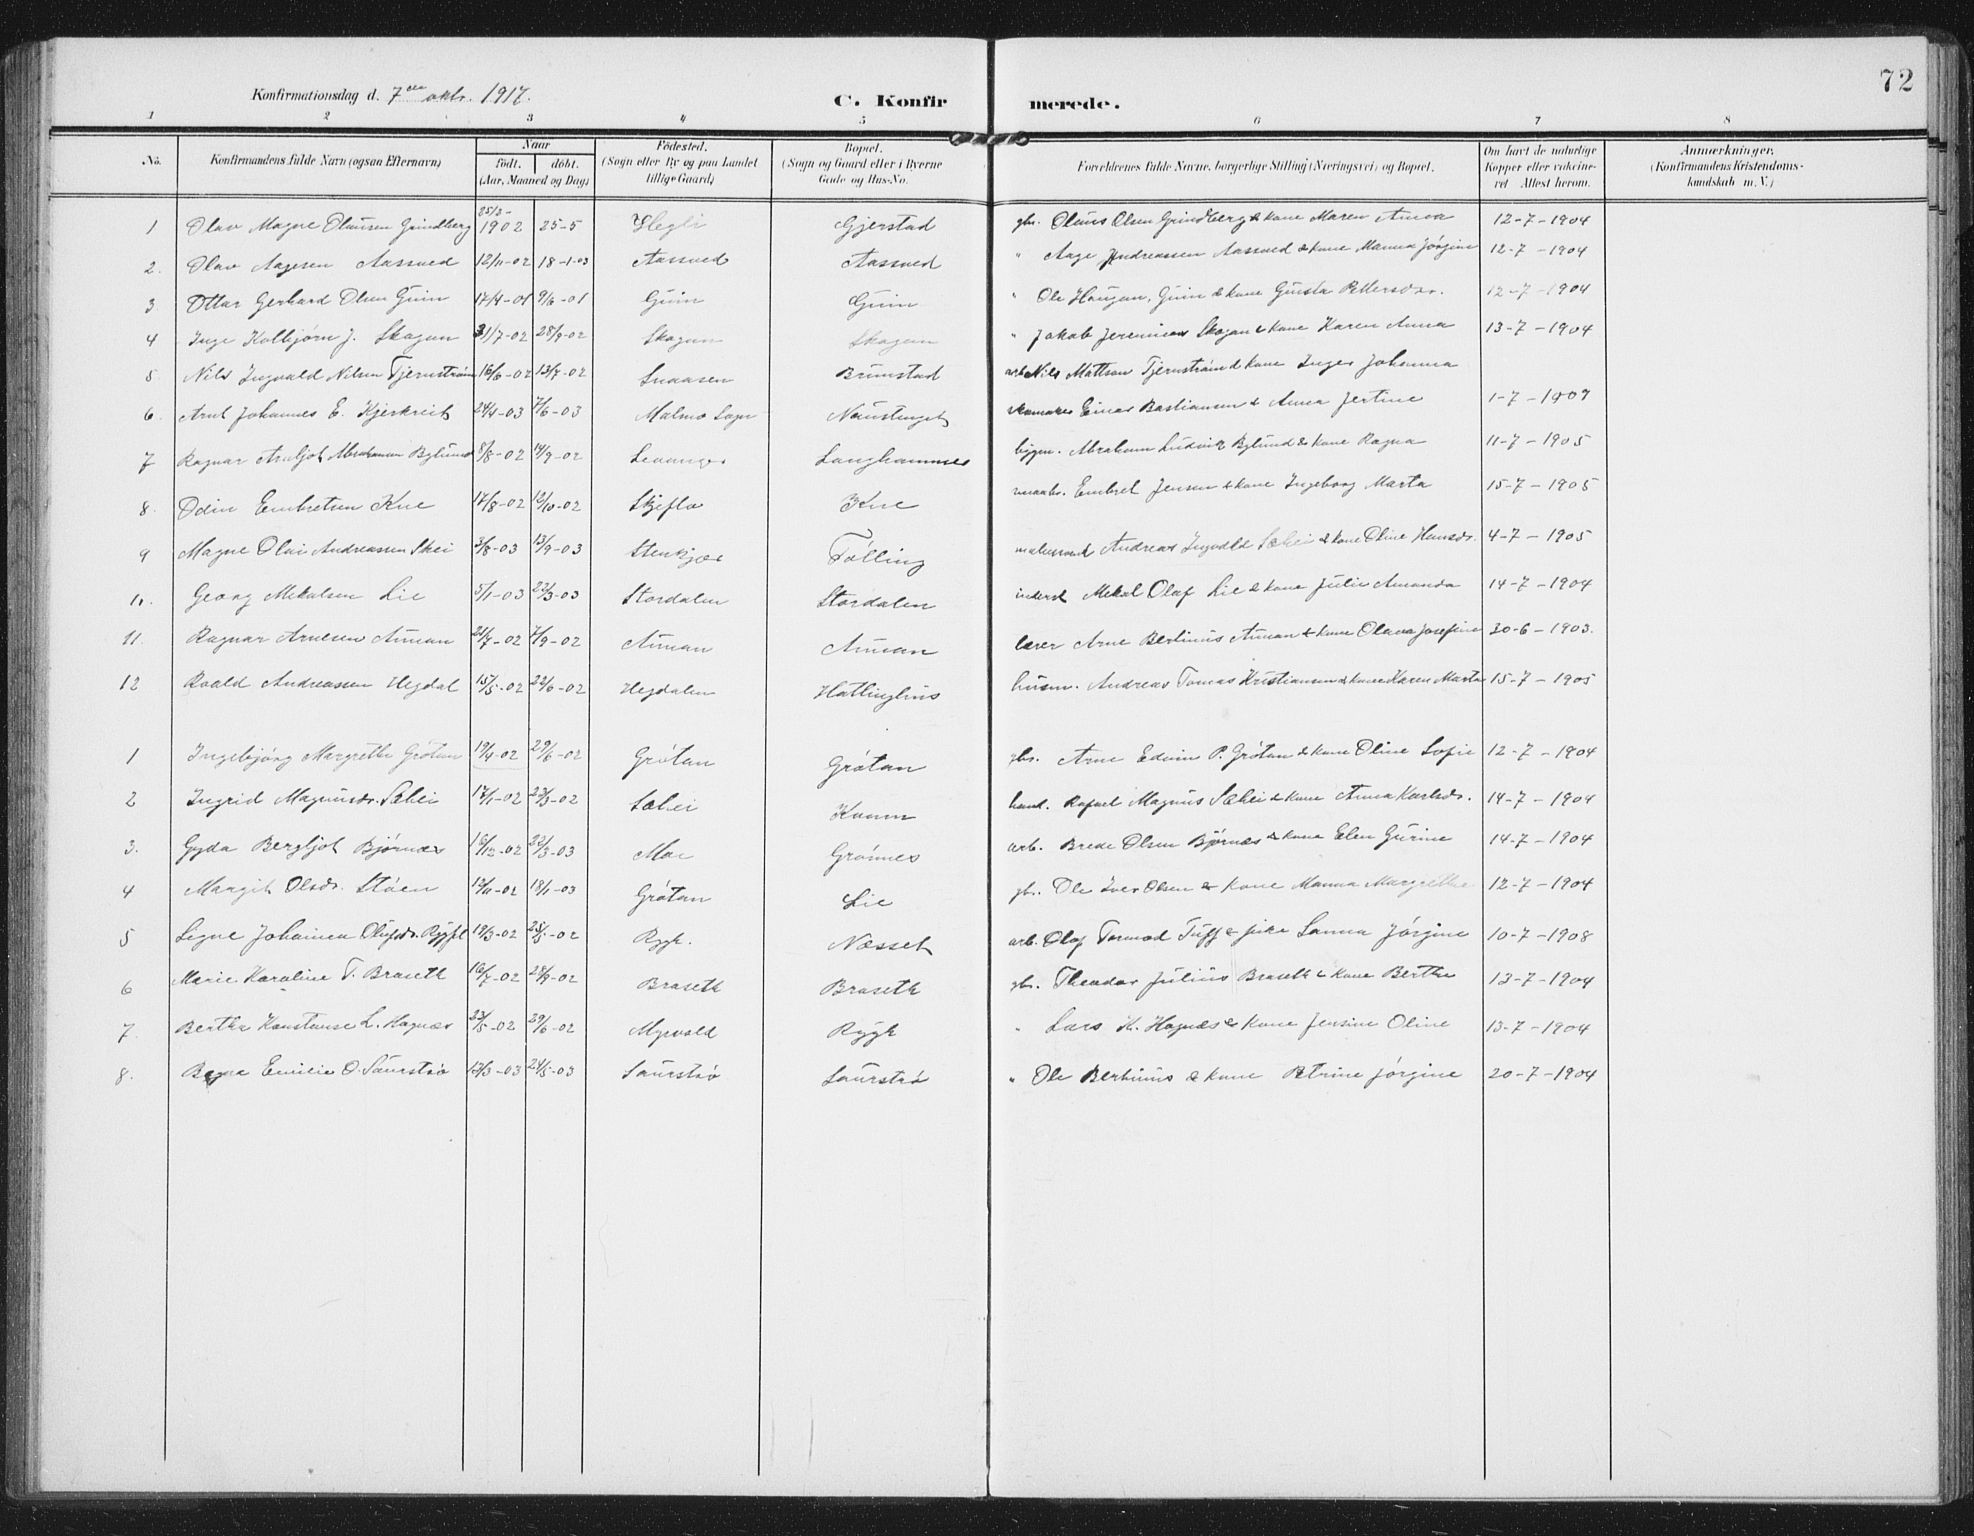 72
Konfirmationsdag d. 7de oktr. 1917.
C. Konfirmerede.
1 2 3 4 5 6 7 8
No. Konfirmandens fulde Navn (ogsaa Efternavn) Naar födt. döbt. (Aar, Maaned og Dag) Födested. (Sogn eller By og paa Landet tillige Gaard) Bopæl. (Sogn og Gaard eller i Byerne Gade og Hus-No. Forældrenes fulde Navne, borgerlige Stilling (Næringsvei) og Bopæl. Om havt de naturlige Kopper eller vakcineret. Attest herom. Anmærkninger. (Konfirmandens Kristendomskundskab m. V.)
1 Olav Magne Olausen Grindberg 25/3-1902 25-5 Hegli Gjerstad gbr. Olaus Olsen Grindberg & kone Maren Anna 12-7-1904
2. Olav Aagesen Aassved 12/11-02 18-1-03 Aassved Aassved " Aage Andreassen Aassved & kone Manna Jörgine 12-7-1904
3 Ottar Gerhard Olsen Guin 17/4-01 9/6-01 Guin Guin " Ole Haugan, Guin & kone Gusta Pettersdr. 12-7-1904
4 Inge Kolbjørn J. Skagan 31/7-02 28/9-02 Skagan Skagan " Jakob Jeremias Skagan & kone Karen Anna 13-7-1904
5 Nils Ingvald Nilsen Tjernström 16/6-02 13/7-02 Snaasen Brunstad arb. Nils Mattsen Tjernström & kone Inger Johanna
6. Arnt Johannes E. Kjerkreit 24/4-03 7/6-03 Malmo Sogn Naustunget Einar Bastiansen & Anna Jertine 1-7-1909
7 Ragnar Arnljot Abrahamsen Bylund 8/8-02 14/9-02 Levanger Langhammer bygm. Abraham Ludvig Bylund & kone Ragna 11-7-1905
8. Odin Embretsen Kne 17/8-02 12/10-02 Skjefla Kne Embret Jensen & kone Ingeborg Marta 15-7-1905
9 Magne Olai Andreassen Skei 3/8-03 13/9-03 Stenkjær Følling Andreas Ingvald Skei & kone Oline Hansdr. 4-7-1905
10. Georg Mekalsen Lie 5/1-03 22/3-03 Stordalen Stordalen inderst Mekal Olaf Lie & kone Julie Amanda 14-7-1904
11. Ragnar Arnesen Aunan 21/7-02 7/9-02 Aunan Aunan lærer Arne Bertinus Aunan & kone Olava Josefine 30-6-1903.
12 Roald Andreassen Hegdal 15/5-02 22/6-02 Hegdalen Hatlinghus husm. Andreas Tomas Kristiansen & kone Karen Marta 15-7-1905
1 Ingebjörg Margrethe Grötan 19/4-02 29/6-02 Grötan Grötan gbr. Arne Edvin P. Grötan & kone Oline Sofie 12-7-1904
2 Ingrid Magnusdr. Sælei 17/1-02 23/3-02 Sælei Kvam hand. Rafael Magnus Sælei & kone Anna Karlsdr. 14-7-1904
3. Gyda Bergljot Bjørnæs 16/12-02 22/3-03 Moe Grönnes arb. Brede Olsen Bjørnæs & kone Elen Gurine 14-7-1904
4 Margit Olsdr. Støen 13/11-02 18/1-03 Grötan Lie gbr. Ole Iver Olsen & kone Manna Margrethe 12-7-1904
5 Signe Johanna Olufsdr. Rygh 19/3-02 25/5-02 Rygh. Næsset arb. Olaf Tormod Tuff & pike Sanna Jørgine 10-7-1908
6 Marie Karoline T. Braseth 16/7-02 28/9-02 Braseth Braseth gbr. Theodor Julius Braseth & kone Berthe 13-7-1904
7. Bertha Konstanse L. Hognæs 23/5-02 29/6-02 Myrvold Rygh " Lars K. Hognæs & kone Jensine Oline 13-7-1904
8. Emilie O. Saurstrø 13/3-03 24/5-03 Saurstrø Saurstrø " Ole Bertinus & kone Petrine Jørgine 20-7-1904